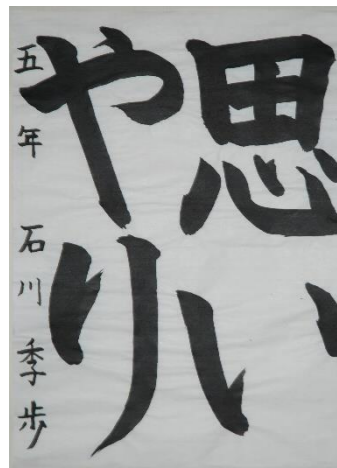 思い
やり
五年 石川季歩